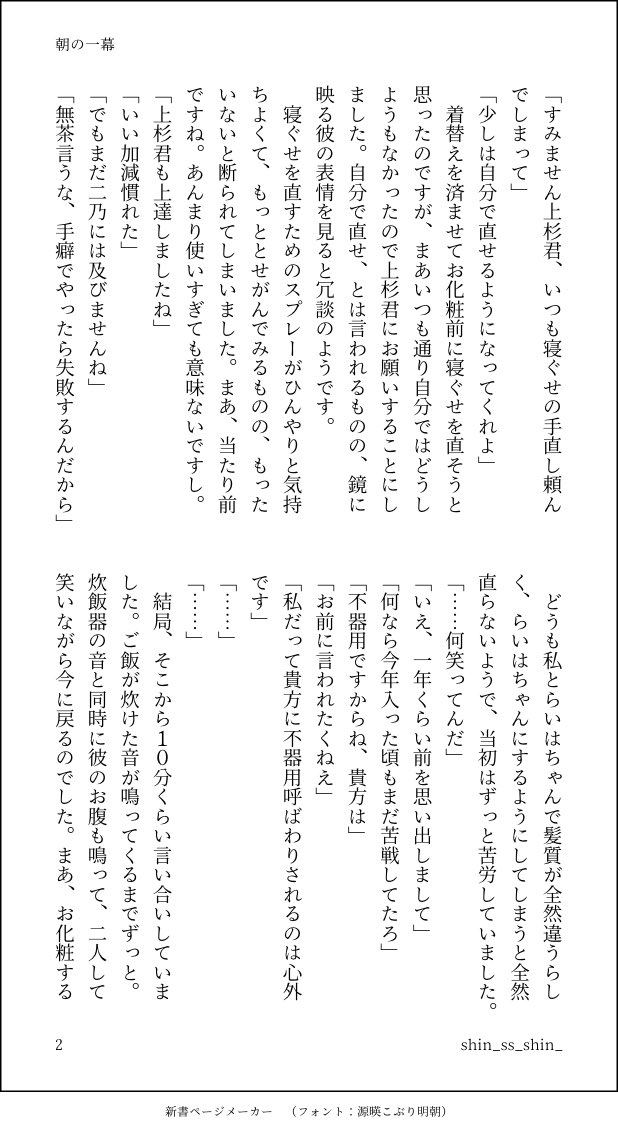 朝の一幕
「すみません上杉君、いつも寝ぐせの手直し頼ん
でしまって」
「少しは自分で直せるようになってくれよ」
　着替えを済ませてお化粧前に寝ぐせを直そうと
思ったのですが、まあいつも通り自分ではどうし
ようもなかったので上杉君にお願いすることにし
ました。自分で直せ、とは言われるものの、鏡に
映る彼の表情を見ると冗談のようです。
　寝ぐせを直すためのスプレーがひんやりと気持
ちよくて、もっととせがんでみるものの、もった
いないと断られてしまいました。まあ、当たり前
ですね。あんまり使いすぎても意味ないですし。
「上杉君も上達しましたね」
「いい加減慣れた」
「でもまだ二乃には及びませんね」
「無茶言うな、手癖でやったら失敗するんだから」
　どうも私とらいはちゃんで髪質が全然違うらし
く、らいはちゃんにするようにしてしまうと全然
直らないようで、当初はずっと苦労していました。
「……何笑ってんだ」
「いえ、一年くらい前を思い出しまして」
「何なら今年入った頃もまだ苦戦してたろ」
「不器用ですからね、貴方は」
「お前に言われたくねえ」
「私だって貴方に不器用呼ばわりされるのは心外
です」
「……」
「……」
　結局、そこから１０分くらい言い合いしていま
した。ご飯が炊けた音が鳴ってくるまでずっと。
炊飯器の音と同時に彼のお腹も鳴って、二人して
笑いながら今に戻るのでした。まあ、お化粧する
2
shin_ss_shin_
新書ページメーカー　（フォント：源暎こぶり明朝）